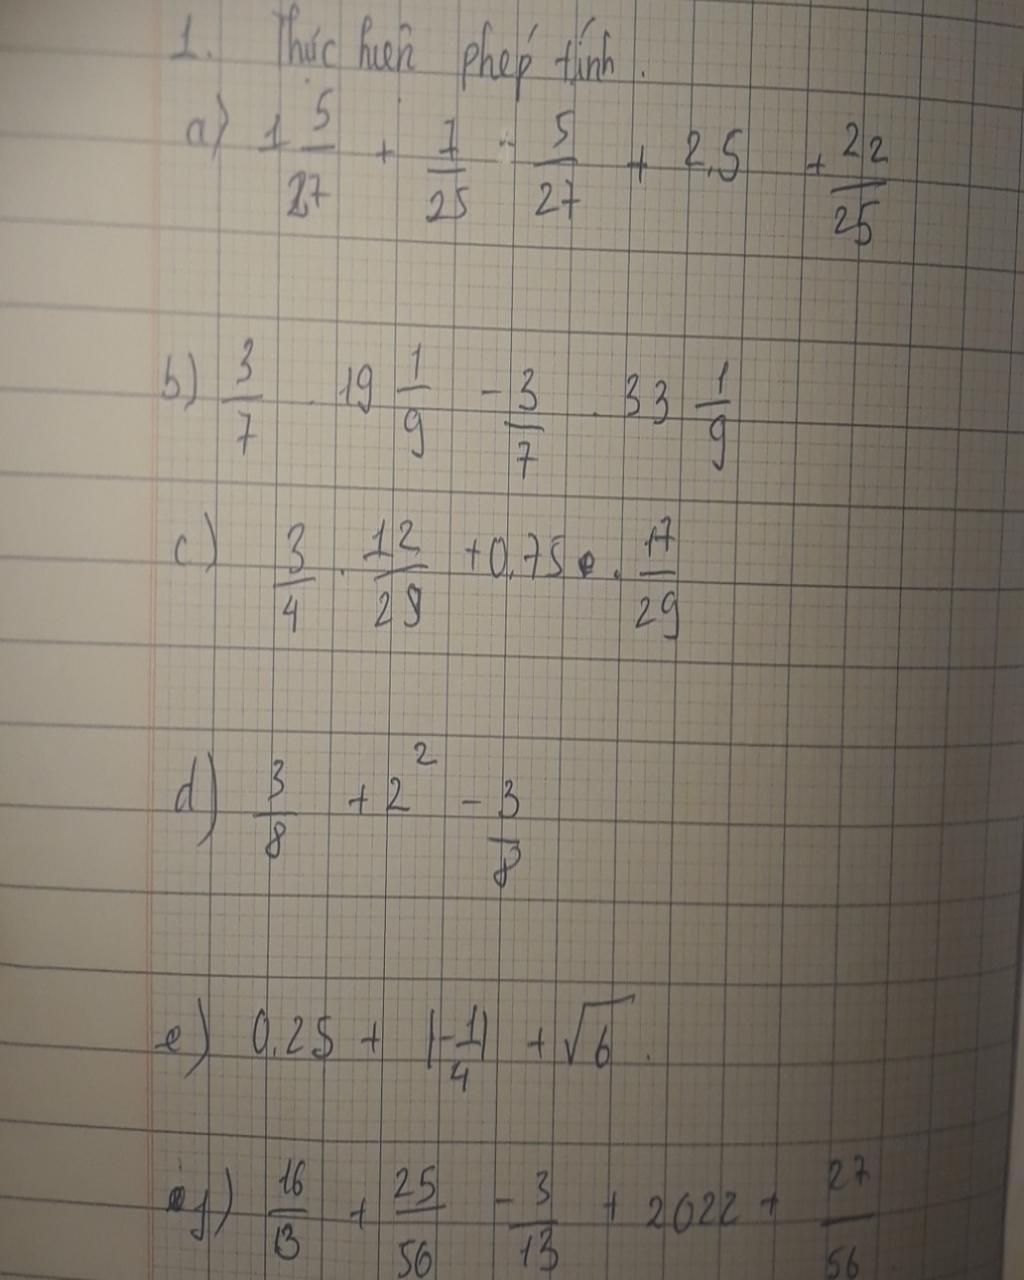 1. Thực hiện phép tính.
a) 1 5/27 + 7/25 - 5/27 + 2,5 + 22/25
b) 3/7 . 19 1/9 - 3/7 . 33 1/9
c) 3/4 . 12/29 + 0,75 . 17/29
d) 3/8 + 2² - 3/8
e) 0,25 + |-1/4| + √6.
f) 16/13 + 25/56 - 3/13 + 2022 + 27/56